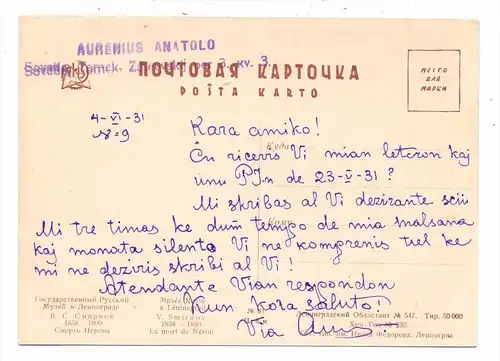 AURENIUS ANATOLO
Sovetio, Tomsk, 3, kv. 3.
ПОЧТОВАЯ КАРТОЧКА
POŜTA KARTO
МЕСТО
ДЛЯ
МАРКИ
4-VI-31
N=9
Kara amiko!
Куда
Ĉu ricevis Vi mian leteron kaj
unu P.In de 23-V-31?
Mi skribas al Vi dezirante scii
Кому
Mi tre timas ke dum tempo de mia malsana
kaj monata silento Vi ne komprenis tiel ke
mi ne deziris skribi al Vi!
Atendante Vian respondon
Kun kora saluto!
Via
Государственный Русский
Музей в Ленинграде
В. С. Смирнов
1858 - 1890
Смерть Нерона
Musée
à Léning
V. Smirnov
1858 - 1890
La mort de Néron
Ленинградский Областлит № 547. Тир. 50 000
235
им. Ивана Федорова, Ленингр.